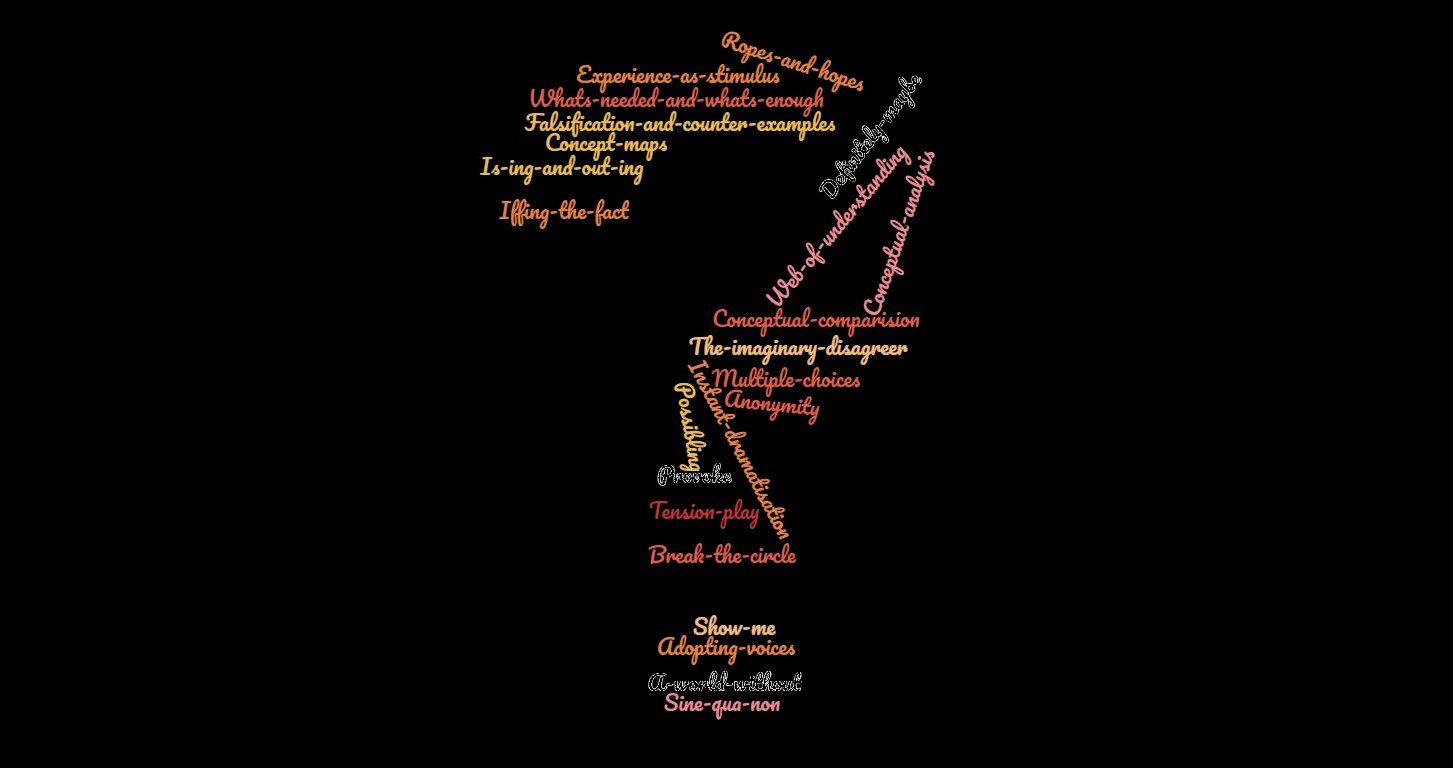 Ropes-and-hopes
Experience-as-stimulus
Whats-needed-and-whats-enough
Falsification-and-counter-examples
Concept-maps
Is-ing-and-out-ing
Iffing-the-fact
Definitely-maybe
Web-of-understanding
Conceptual-analysis
Conceptual-comparision
The-imaginary-disagreer
Multiple-choices
Anonymity
Instant-dramatisation
Possibling
Provoke
Tension-play
Break-the-circle
Show-me
Adopting-voices
A-world-without
Sine-qua-non